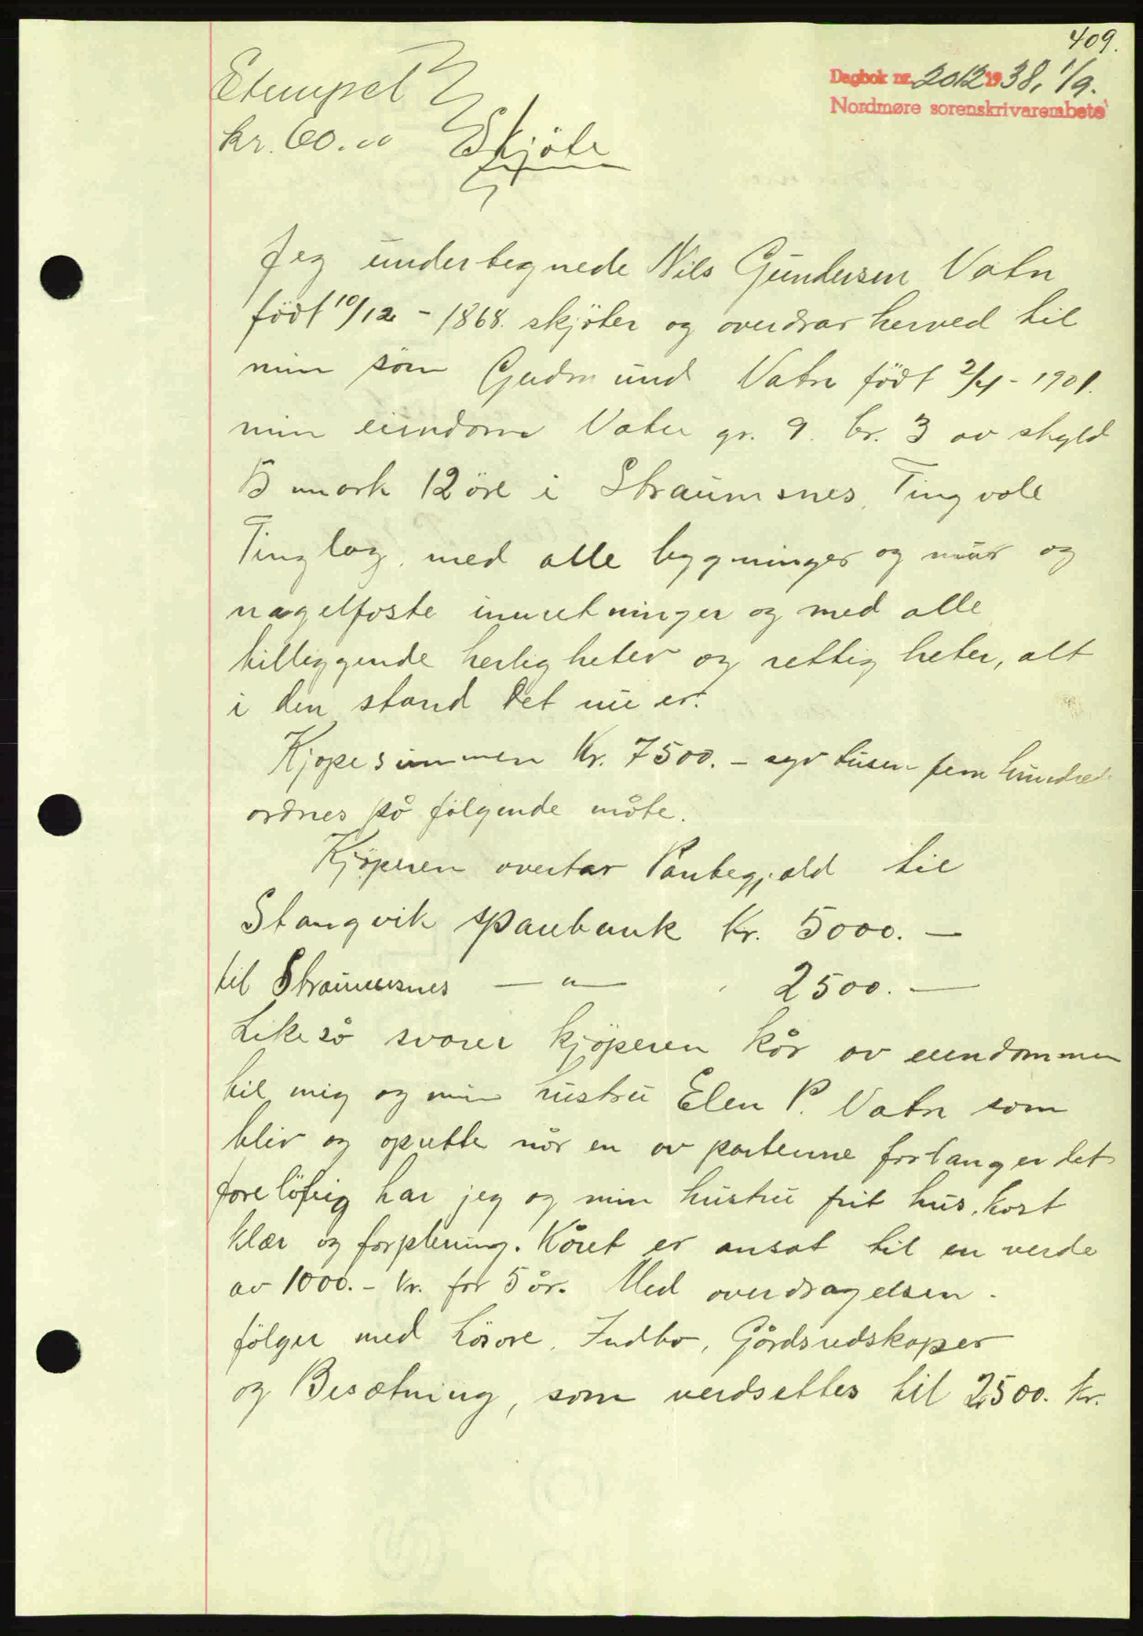 409.
Dagbok nr. 2012 1938, 1/9.
Nordmøre sorenskrivarembete
Stempel
kr. 60.00 Skjöte
Jeg undertegnede Nils Gundersen Vatn
född 10/12 - 1868. skjöter og overdrar herved til
min sön Gudmund Vatn födt 2/4 - 1901.
min eiendom Vatn gr. 9. br. 3 av skyld
5 mark 12 öre i Straumsnes, Tingvoll
Tinglag, med alle bygninger og mur og
nagelfaste innretninger og med alle
tilliggende herligheter og rettigheter, alt
i den stand det nu er.
Kjøpesummen Kr. 7500. - syv tusen fem hundrede
ordnes på følgende måte.
Kjöperen overtar Pantegjæld til
Stangvik sparebank Kr. 5000. —
til Straumsnes — " — 2500. —
Likeså svarer kjöperen kår av eiendommen
til mig og min hustru Elen P. Vatn som
bliv og oprette når en av partenne forlanger det
foreløbig har jeg og min hustru frit hus, kost
klær og forpleining. Kåret er ansat til en verde
av 1000. - kr. for 5 år. Med overdragelsen
fölger med Lösöre, Indbo, Gårdsredskaper
og Besætning, som verdsettes til 2500. kr.